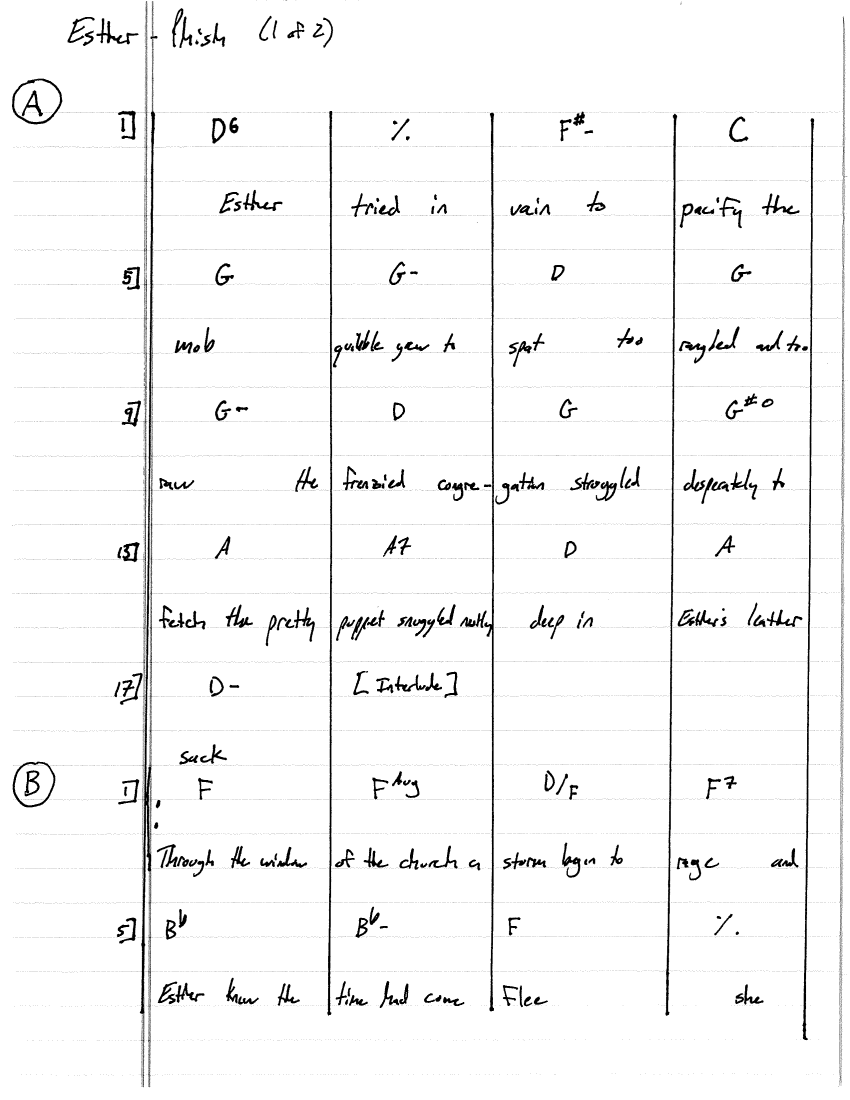 Esther - Phish (1 of 2)
A
1] D6 % F#- C
Esther tried in vain to pacify the
5] G G- D G
mob quibble grew to spat too tangled and too
9] G- D G G#o
raw the frenzied congre-gation struggled desperately to
13] A A7 D A
fetch the pretty puppet snuggled neatly deep in Esther's leather
17] D- [Interlude]
sack
B
1] F F Aug D/F F7
Through the window of the church a storm began to rage and
5] Bb Bb- F %
Esther knew the time had come Flee she